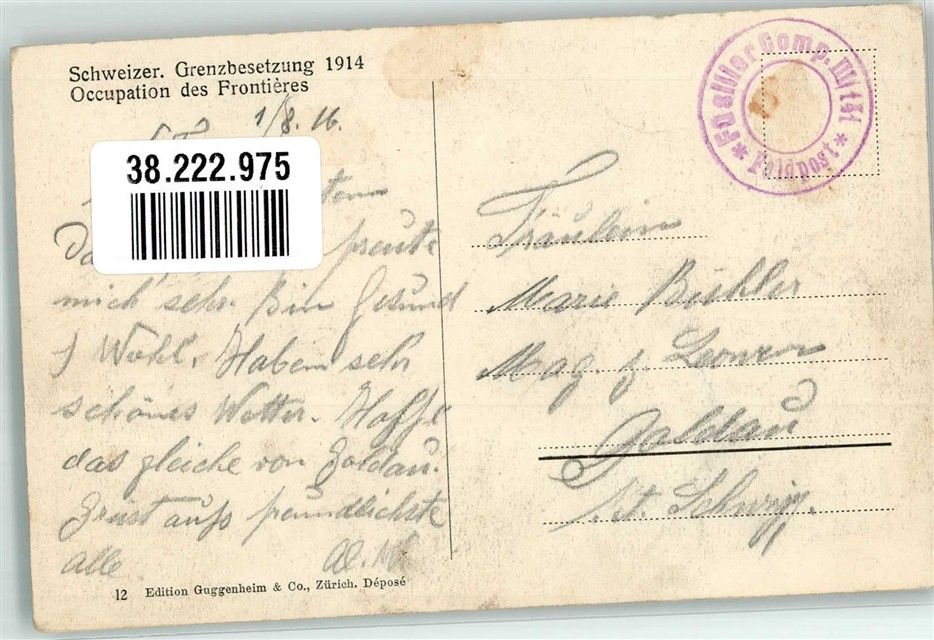 Schweizer. Grenzbesetzung 1914
Occupation des Frontières
1/8. 16.
38.222.975
freute
mich sehr. Bin Gesund
Wohl. Haben sehr
schönes Wetter. Hoffe
das gleiche von Goldau.
Grüst aufs freundlichste
alle
12 Edition Guggenheim & Co., Zürich. Déposé
Füsilier Comp. III/181
* Feldpost *
Fräulein
Marie Bühler
Mag. z.
Goldau
Kt. Schwyz.